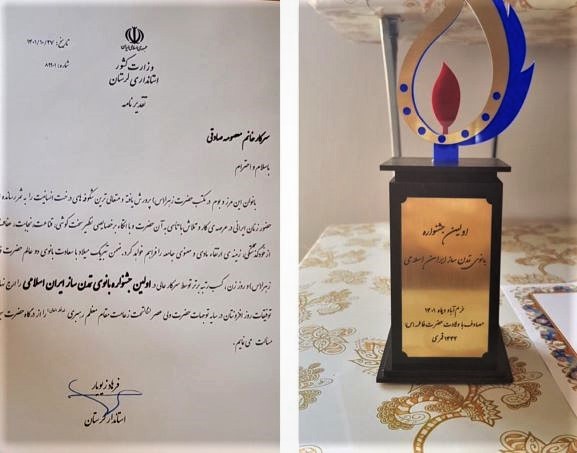 جمهوری اسلامی ایران
وزارت کشور
استانداری لرستان
تاریخ: ۱۴۰۱/۱۰/۲۷
شماره: ۸۹۹۰۱
تقدیر نامه
سرکار خانم معصومه صادقی
باسلام و احترام
بانوان این مرز و بوم در مکتب حضرت زهرا(س) پرورش یافته و متعالی ترین شکوفه های درخت انسانیت را به ثمر رسانده
حضور زنان ایرانی در عرصه ی کار و تلاش با تاسی به آن حضرت و با اتکاء بر خصایصی نظیر سخت کوشی، قناعت، نجابت،
از خودگذشتگی، زمینه ی ارتقاء مادی و معنوی جامعه را فراهم خواهد کرد. ضمن تبریک میلاد با سعادت بانوی دو عالم حضرت
زهرا(س) و روز زن، کسب رتبه برتر توسط سرکار عالی در اولین جشنواره بانوی تمدن ساز ایران اسلامی را ارج
توفیقات روز افزونتان در سایه توجهات حضرت ولی عصر تحت زعامت مقام معظم رهبری را از درگاه حضرت
مسألت می نمایم.
فرهاد زیویار
استاندار لرستان
اولین جشنواره
بانوی تمدن ساز ایران اسلامی
خرم آباد دیماه ۱۴۰۱
مصادف با ولادت حضرت فاطمه(س)
۱۴۴۴ قمری